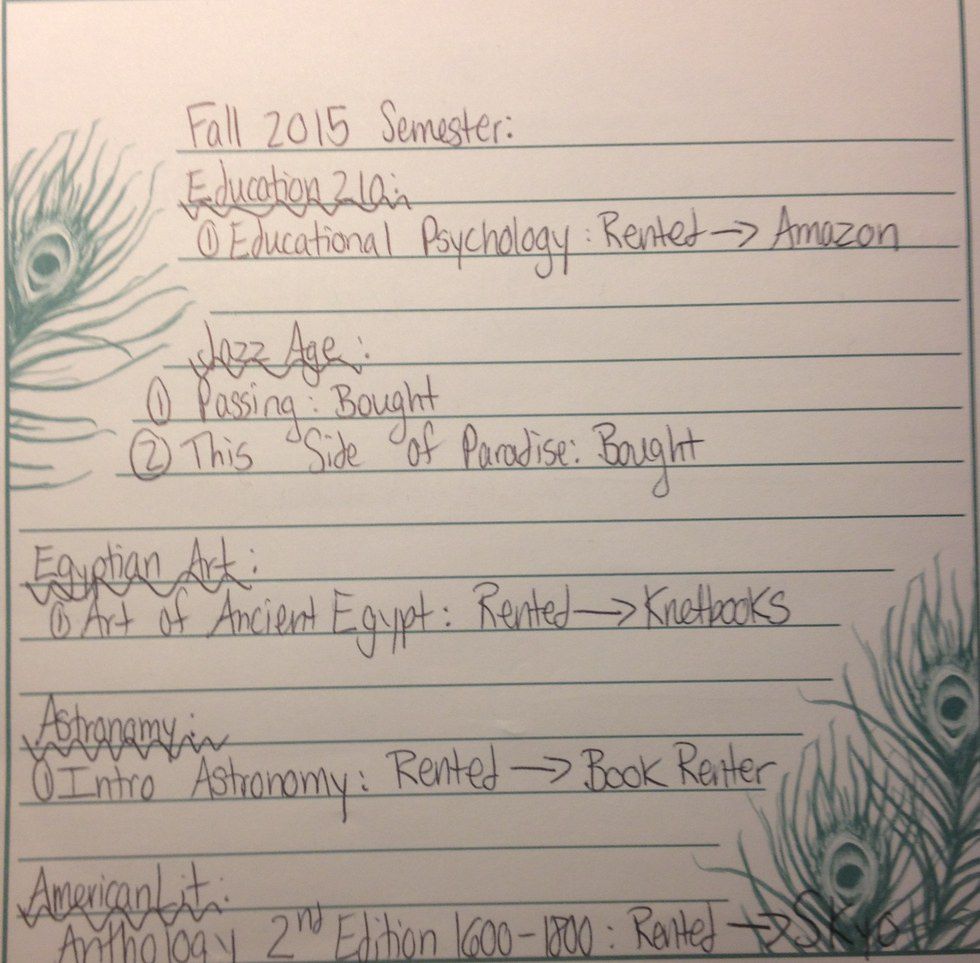 Fall 2015 Semester:
Education 210:
① Educational Psychology: Rented → Amazon
Jazz Age:
① Passing: Bought
② This Side of Paradise: Bought
Egyptian Art:
① Art of Ancient Egypt: Rented → Knetbooks
Astronamy:
① Intro Astronomy: Rented → Book Renter
American Lit:
Anthology 2nd Edition 1600-1800: Rented → SKyo